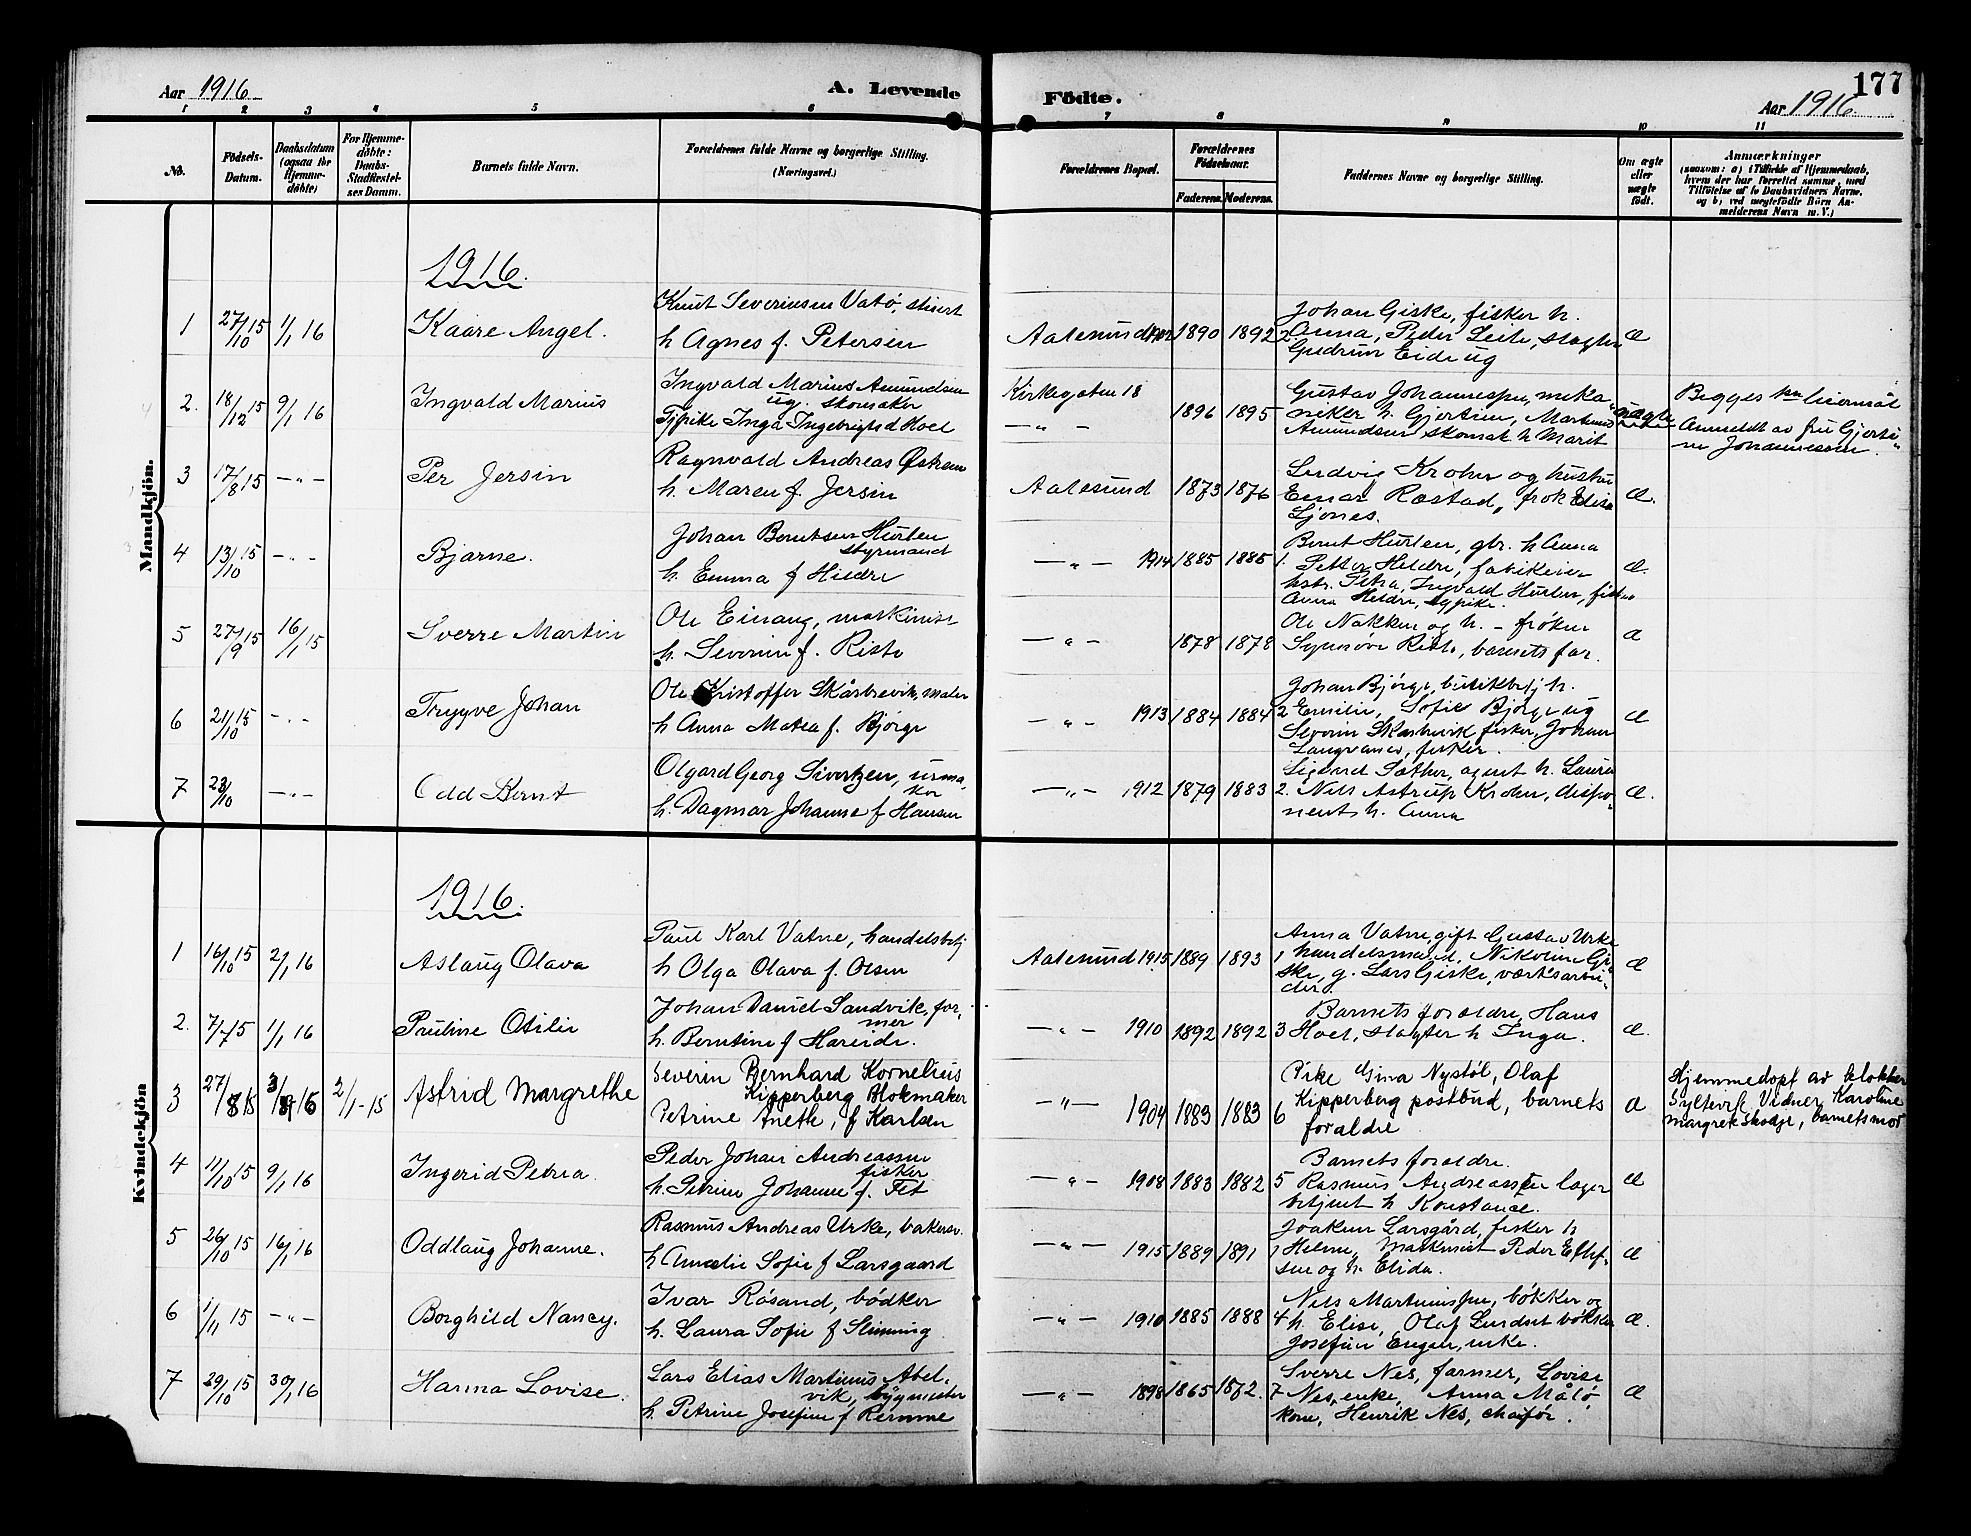 177
Aar 1916. A. Levende Födte. Aar 1916.
1 2 3 4 5 6 7 8 9 10 11
No.
Födsels-Datum.
Daabsdatum (ogsaa for Hjemme-döbte)
For Hjemme-döbte: Daabs-Stadfæstel-ses Datum.
Barnets fulde Navn.
Forældrenes fulde Navne og borgerlige Stilling. (Næringsvei.)
Forældrenes Bopæl.
Forældrenes Födselsaar.
Faderens. Moderens.
Faddernes Navne og borgerlige Stilling.
Om ægte eller uægte födt.
Anmærkninger
(saasom: a) i Tilfælde af Hjemmedaab,
hvem der har forrettet samme, med
Tilföielse af to Daabsvidners Navne,
og b) ved uægtefödte Börn An-
melderens Navn m. V.)
Mandkjön.
1916.
1 27/10 15 1/1 16 Kaare Angel.
Knut Severinsen Vatö,
h Agnes f. Petersen
Aalesund 1890 1892 2
Johan Giske, fisker h.
Anna, Peder Leite, slagter
Gudrun Eide ug
æ
2. 18/12 15 9/1 16 Ingvald Marius
Ingvald Marius Amundsen
ug. skomaker
Inga Ingebrigtsd Hoel
Kirkegaten 18
— " — 1896 1895
Gustav Johannessen, meka-
niker h. Gjertine, Martinus
Amundsen skomak h Marit
uægte
Begges 1ste leiermål
Anmeldt av fru Gjerti-
ne Johannessen.
3 17/8 15 — " — Per Jersin
Ragnvald Andreas
h. Maren f. Jersin
Aalesund 1873 1876
Ludvig Krohn og hustru
Einar Røstad, frøk
æ.
4 13/10 15 — " — Bjarne.
Johan Berntsen Hurlen
styrmand
h. Emma f Hildre
— " — 1914 1885 1885 1.
Bernt Hurlen, gbr. h Anna
Petter Hildre, fabrikeier
hstr. Petra, Ingvald Hurlen, fisker
Anna Hildre, sypike.
æ.
5 27/9 15 16/1 15 Sverre Martin
Ole Einang, maskinist
h. Severine f. Riste
— " — 1878 1878
Ole Nakken og h. – frøken
Synnöve Riste, barnets far.
æ
6 21/10 15 — " — Trygve Johan
Ole Kristoffer Skårbrevik, maler
h Anna Matea f. Bjórge
— " — 1913 1884 1884 2
Johan Bjórge, butikbetj h.
Emilie, Sofie Bjórge ug
Severin Skarbrevik fisker, Johan
Langvanes, fisker.
æ
7 23/10 — " — Odd Bernt
Olgard Georg Sivertzen, urma-
ker
h. Dagmar Johanne f Hansen
— " — 1912 1879 1883 2.
Sigurd Sæther, agent h. Laura
Nils Astrup Krohn, dispo-
nent h. Anna
æ.
Kvindekjön
1916.
1 16/10 15 2/1 16 Aslaug Olava
Paul Karl Vatne, handelsbetj
h Olga Olava f. Olsen
Aalesund 1915 1889 1893 1
Anna Vatne, gift Gustav Urke
handelsmand, Nikoline Gi-
ske, g. Lars Giske, værtsarbei-
der.
æ
2. 7/7 15 1/1 16 Pauline Otilie
Johan Daniel Sandvik, for-
mer
h. Berntine f Hareide.
— " — 1910 1892 1892 3
Barnets foræeldre, Hans
Hoel, slagter h Inga.
æ.
3 27/8 15 3/1 16 2/1-15 Astrid Margrethe
Severin Bernhard Kornelius
Kipperberg Blokmaker
Petrine Anethe, f Karlsen
— " — 1904 1883 1883 6
Pike Gina Nystöl, Olaf
Kipperberg postbud, barnets
foraldre
æ
Hjemmedöpt av klokker
Syltevik Vidner, Karoline
margrek Skodje, barnets mor
4 11/10 15 9/1 16 Ingerid Petra.
Peder Johan Andreassen
fisker
h. Petrine Johanne f. Fet
— " — 1908 1883 1882 5
Barnets foraldre.
Rasmus Andreassen lager
betjent h Konstance.
æ
5 26/10 15 16/1 16 Oddlaug Johanne.
Rasmus Andreas Urke, bakersv.
h Amalie Sofie f Larsgaard
— " — 1915 1889 1891 1
Joakim Larsgård, fisker h
Helene, Maskinist Peder
og h. Elida.
æ
6 1/11 15 — " — Borghild Nancy.
Ivar Rósand, bödker
h. Laura Sofie f Slinning.
— " — 1910 1885 1888 4
Nils Martinussen, bökker og
h. Elise, Olaf Lundset bökker
Josefine Engen, enke.
æ.
7 29/10 15 30/1 16 Hanna Lovise.
Lars Elias Martinus Abel-
vik, bygmester
h. Petrine Josefine f Remme
— " — 1898 1865 1872. 7
Sverre Nes, farmer, Lovise
Nes, enke, Anna Målö
kone, Henrik Nes, chafför.
æ